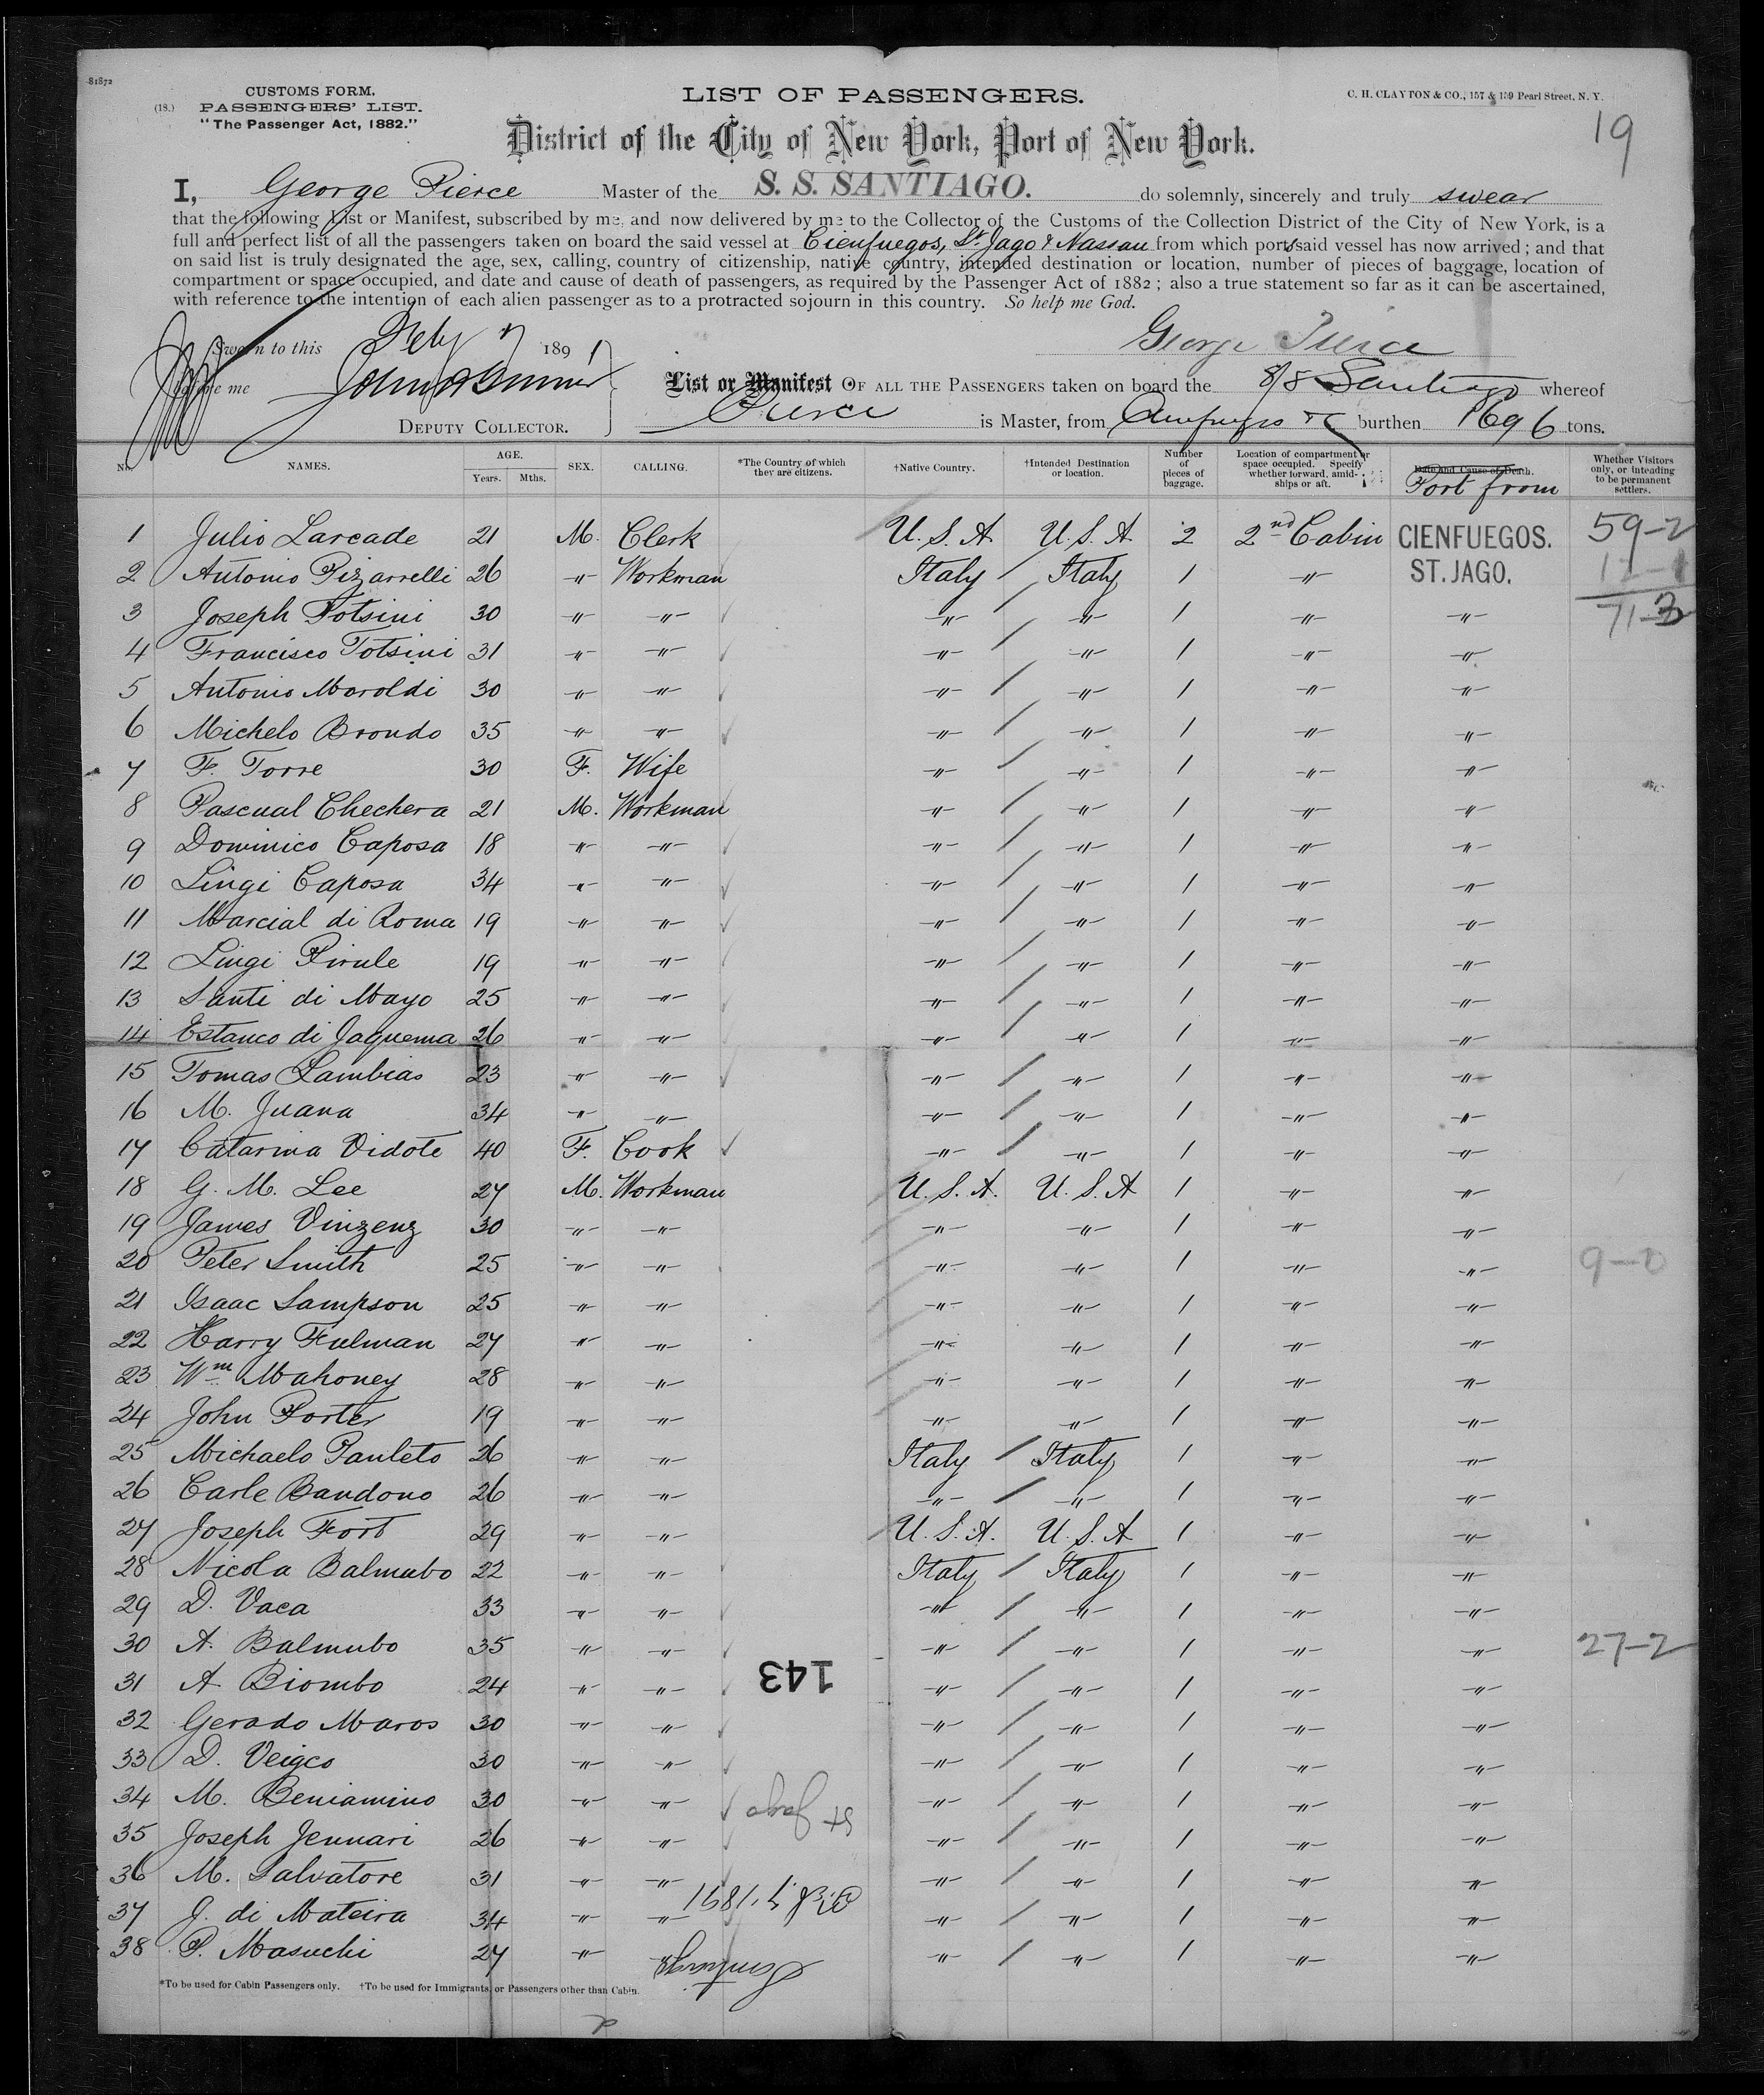 81872
CUSTOMS FORM.
(18.) PASSENGERS' LIST.
"The Passenger Act, 1882."
LIST OF PASSENGERS.
C. H. CLAYTON & CO., 157 & 159 Pearl Street, N. Y.
19
District of the City of New York, Port of New York.
I, George Pierce Master of the S. S. SANTIAGO. do solemnly, sincerely and truly swear
that the following List or Manifest, subscribed by me, and now delivered by me to the Collector of the Customs of the Collection District of the City of New York, is a
full and perfect list of all the passengers taken on board the said vessel at Cienfuegos, St. Jago & Nassau from which ports said vessel has now arrived; and that
on said list is truly designated the age, sex, calling, country of citizenship, native country, intended destination or location, number of pieces of baggage, location of
compartment or space occupied, and date and cause of death of passengers, as required by the Passenger Act of 1882; also a true statement so far as it can be ascertained,
with reference to the intention of each alien passenger as to a protracted sojourn in this country. So help me God.
Sworn to this Feby 7 1891
George Pierce
before me
DEPUTY COLLECTOR.
List or Manifest OF ALL THE PASSENGERS taken on board the S/S Santiago whereof
Pierce is Master, from Cienfuegos &c burthen 1696 tons.
No. NAMES. AGE. Years. Mths. SEX. CALLING. *The Country of which they are citizens. †Native Country. †Intended Destination or location. Number of pieces of baggage. Location of compartment or space occupied. Specify whether forward, amidships or aft. Date and Cause of Death. Port from Whether Visitors only, or intending to be permanent settlers.
1 Julio Larcade 21 M. Clerk U.S.A. U.S.A 2 2nd Cabin CIENFUEGOS. 59-2
2 Antonio Pizarrelli 26 " Workman Italy / Italy 1 " ST. JAGO. 12-1
3 Joseph Potsini 30 " " " / " 1 " " 71-3
4 Francisco Totsini 31 " " " / " 1 " "
5 Antonio Maroldi 30 " " " / " 1 " "
6 Michelo Brondo 35 " " " / " 1 " "
7 F. Torre 30 F. Wife " / " 1 " "
8 Pascual Checkera 21 M. Workman " / " 1 " "
9 Dominico Caposa 18 " " " / " 1 " "
10 Lingi Caposa 34 " " " / " 1 " "
11 Marcial di Roma 19 " " " / " 1 " "
12 Lingi Pirule 19 " " " / " 1 " "
13 Santi di Mayo 25 " " " / " 1 " "
14 Estanco di Jaquema 26 " " " / " 1 " "
15 Tomas Lambias 23 " " " / " 1 " "
16 M. Juana 34 " " " / " 1 " "
17 Catarina Vidote 40 F. Cook " / " 1 " "
18 G. M. Lee 27 M. Workman U.S.A. U.S.A 1 " "
19 James Vinzenz 30 " " " " 1 " "
20 Peter Smith 25 " " " " 1 " " 9-0
21 Isaac Sampson 25 " " " " 1 " "
22 Harry Fulman 27 " " " " 1 " "
23 Wm Mahoney 28 " " " " 1 " "
24 John Porter 19 " " " " 1 " "
25 Michaelo Pauleto 26 " " Italy / Italy 1 " "
26 Carle Bandono 26 " " " / " 1 " "
27 Joseph Fort 29 " " U.S.A. U.S.A 1 " "
28 Nicola Balmubo 22 " " Italy / Italy 1 " "
29 D. Vaca 33 " " " / " 1 " "
30 A. Balmubo 35 " " " / " 1 " " 27-2
31 A. Biombo 24 " " 143 " / " 1 " "
32 Gerado Maros 30 " " " / " 1 " "
33 D. Veigco 30 " " " / " 1 " "
34 M. Beniamino 30 " " St Jago " / " 1 " "
35 Joseph Jennari 26 " " " / " 1 " "
36 M. Salvatore 31 " " " / " 1 " "
37 J. di Mateira 34 " " 1891 " / " 1 " "
38 P. Masuchi 27 " " / " 1 " "
*To be used for Cabin Passengers only. †To be used for Immigrants, or Passengers other than Cabin.